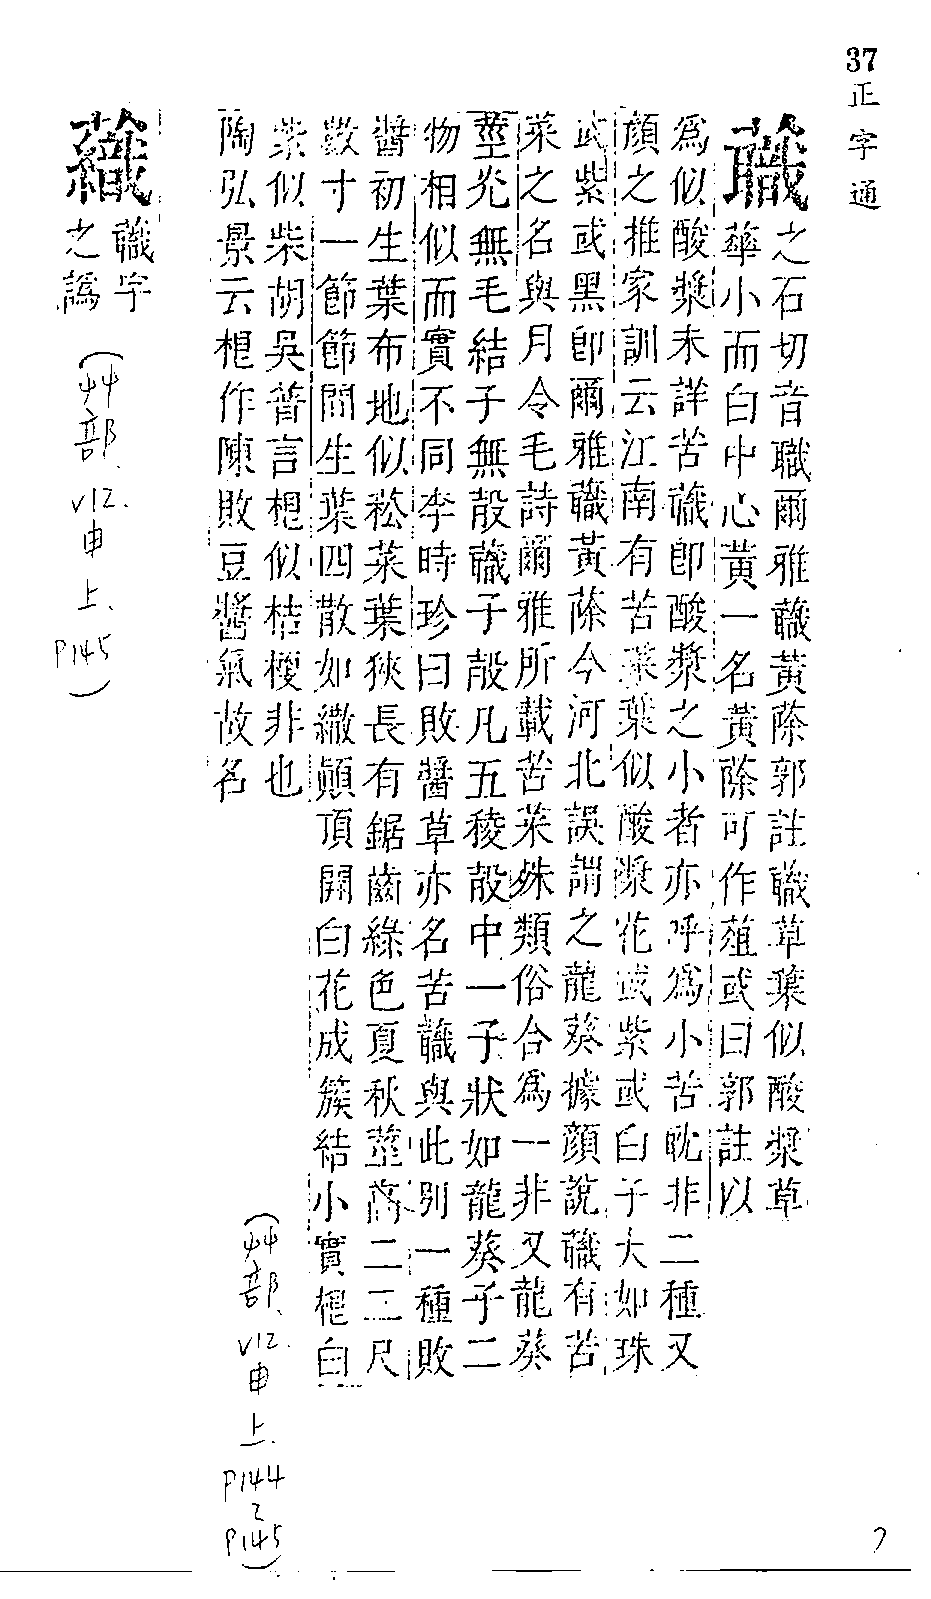 37
正字通
蘵
之石切音職爾雅蘵黃蒢郭註蘵草葉似酸漿草
華小而白中心黃一名黃蒢可作葅或曰郭註以
爲似酸漿未詳苦蘵卽酸漿之小者亦呼爲小苦耽非二種又
顏之推家訓云江南有苦菜葉似酸漿花或紫或白子大如珠
或紫或黑卽爾雅蘵黃蒢今河北誤謂之龍葵據顏說蘵有苦
菜之名與月令毛詩爾雅所載苦菜殊類俗合爲一非又龍葵
莖光無毛結子無殼蘵子殼凡五稜殼中一子狀如龍葵子二
物相似而實不同李時珍曰敗醬草亦名苦蘵與此別一種敗
醬初生葉布地似菘菜葉狹長有鋸齒綠色夏秋莖高二三尺
數寸一節節間生葉四散如繖顚頂開白花成簇結小實根白
紫似柴胡吳普言根似桔梗非也
陶弘景云根作陳敗豆醬氣故名
(艸部、v12.申上、P144~P145)
蘵字
之譌
(艸部、v12.申上、P145)
7